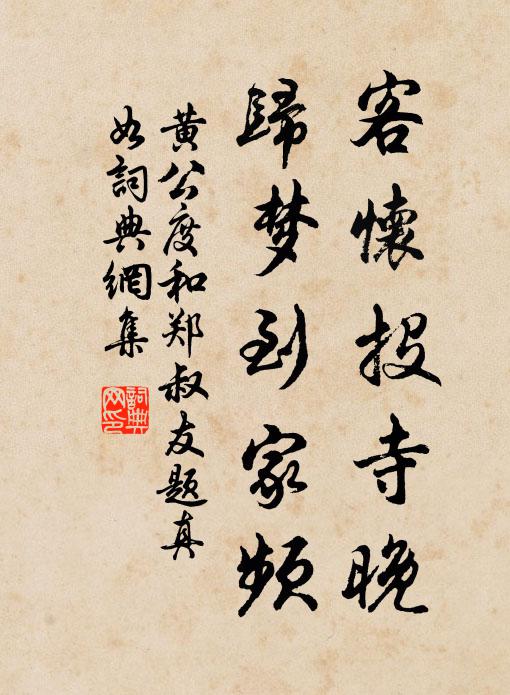 客懷投寺晚
歸梦到家頻
黄公度和郑叔友题真
如詞典網集
詞典網印